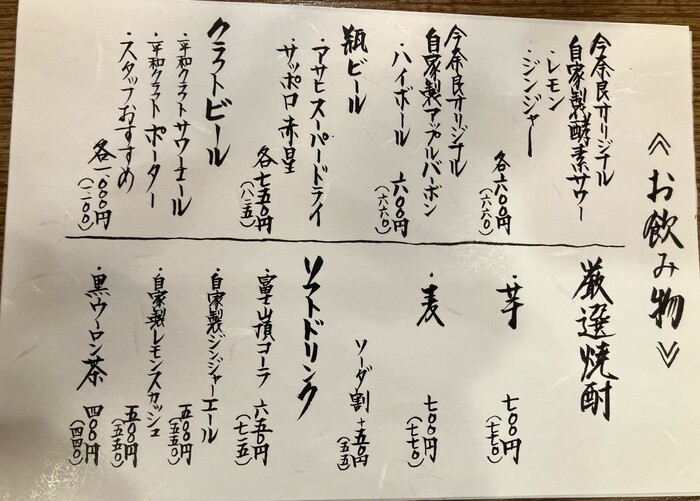 《お飲み物》
今奈良オリジナル
自家製酵素サワー
・レモン
・ジンジャー
各六〇〇円
(六六〇)
今奈良オリジナル
自家製アップルバーボン
・ハイボール
六〇〇円
(六六〇)
瓶ビール
・アサヒスーパードライ
・サッポロ赤星
各七五〇円
(八二五)
クラフトビール
・平和クラフトサワーエール
・平和クラフトポーター
・スタッフおすすめ
各一、〇〇〇円
(一一〇〇)
厳選焼酎
・芋
七〇〇円
(七七〇)
・麦
七〇〇円
(七七〇)
ソーダ割 +五〇円
(五五)
ソフトドリンク
・富士山頂コーラ
六五〇円
(七一五)
・自家製ジンジャーエール
五〇〇円
(五五〇)
・自家製レモンスカッシュ
五〇〇円
(五五〇)
・黒ウーロン茶
四〇〇円
(四四〇)